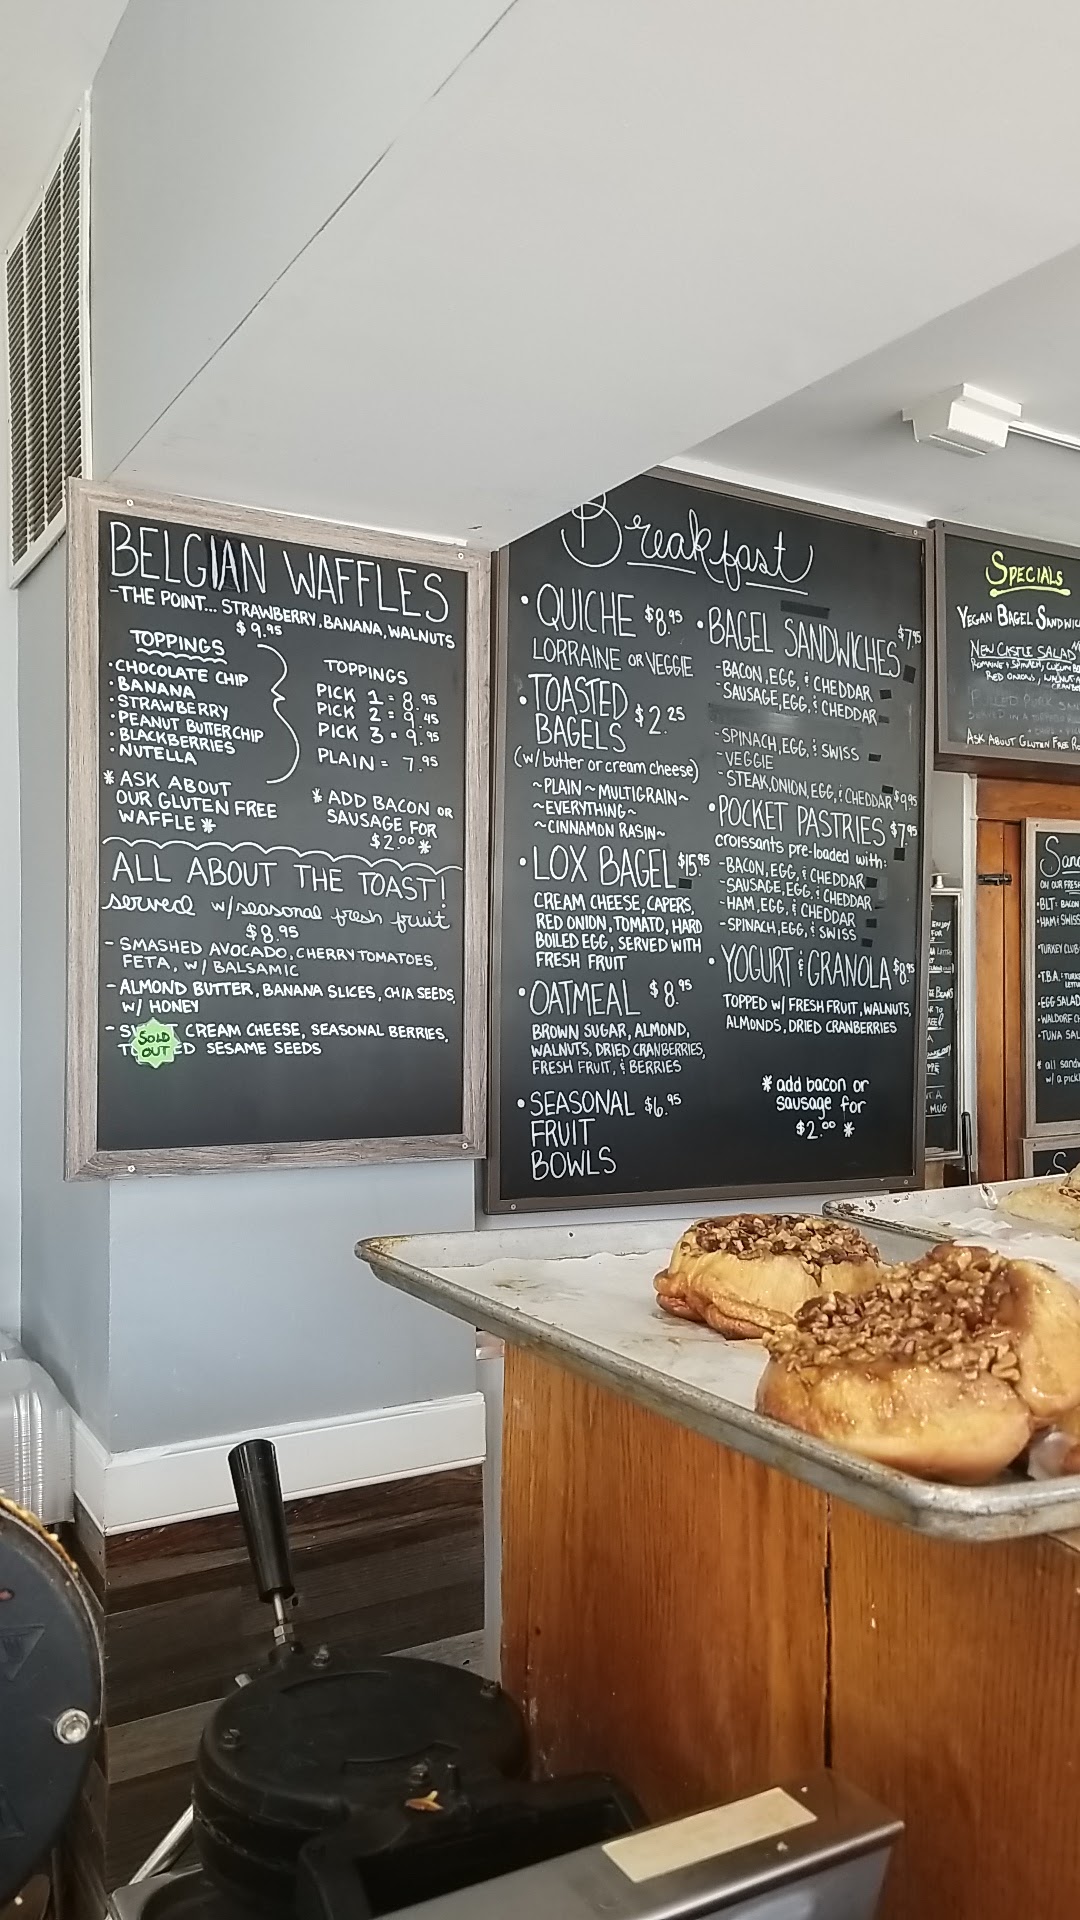 BELGIAN WAFFLES
-THE POINT... STRAWBERRY, BANANA, WALNUTS
$9.95
TOPPINGS
•CHOCOLATE CHIP
•BANANA
•STRAWBERRY
•PEANUT BUTTER CHIP
•BLACKBERRIES
•NUTELLA
TOPPINGS
PICK 1 = 8.95
PICK 2 = 9.45
PICK 3 = 9.95
PLAIN = 7.95
* ASK ABOUT
OUR GLUTEN FREE
WAFFLE *
* ADD BACON OR
SAUSAGE FOR
$2.00 *
ALL ABOUT THE TOAST!
served w/seasonal fresh fruit
$8.95
- SMASHED AVOCADO, CHERRY TOMATOES,
FETA, W/ BALSAMIC
- ALMOND BUTTER, BANANA SLICES, CHIA SEEDS,
W/ HONEY
- CREAM CHEESE, SEASONAL BERRIES,
SESAME SEEDS
SOLD
OUT
Breakfast
• QUICHE $8.95
LORRAINE OR VEGGIE
• TOASTED
BAGELS $2.25
(w/ butter or cream cheese)
~PLAIN ~ MULTIGRAIN~
~EVERYTHING~
~CINNAMON RASIN~
• LOX BAGEL $15.95
CREAM CHEESE, CAPERS,
RED ONION, TOMATO, HARD
BOILED EGG, SERVED WITH
FRESH FRUIT
• OATMEAL $8.95
BROWN SUGAR, ALMOND,
WALNUTS, DRIED CRANBERRIES,
FRESH FRUIT, & BERRIES
• SEASONAL $6.95
FRUIT
BOWLS
• BAGEL SANDWICHES $7.95
-BACON, EGG, & CHEDDAR
-SAUSAGE, EGG, & CHEDDAR
-SPINACH, EGG, & SWISS
-VEGGIE
-STEAK, ONION, EGG, & CHEDDAR $9.95
• POCKET PASTRIES $7.95
croissants pre-loaded with:
-BACON, EGG, & CHEDDAR
-SAUSAGE, EGG, & CHEDDAR
-HAM, EGG, & CHEDDAR
-SPINACH, EGG, & SWISS
• YOGURT & GRANOLA $8.95
TOPPED W/ FRESH FRUIT, WALNUTS,
ALMONDS, DRIED CRANBERRIES
* add bacon or
sausage for
$2.00 *
SPECIALS
VEGAN BAGEL
NEW CASTLE SALAD
RED ONIONS,
PULLED PORK
ASK ABOUT GLUTEN FREE
ON OUR
•BLT: BACON
•HAM & SWISS
•TURKEY CLUB
•T.B.A.:
•EGG SALAD
•WALDORF
•TUNA
* all
w/ a
MUG